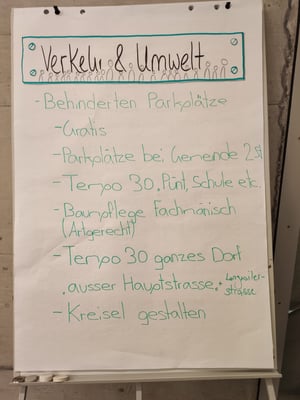 Verkehr & Umwelt
- Behinderten Parkplätze
- Gratis
- Parkplätze bei Gemeinde 2st
- Tempo 30. Pünt, Schule etc.
- Baumpflege Fachmänisch
(Artgerecht)
- Tempo 30 ganzes Dorf
ausser Hauptstrasse. +
strasse
- Kreisel gestalten